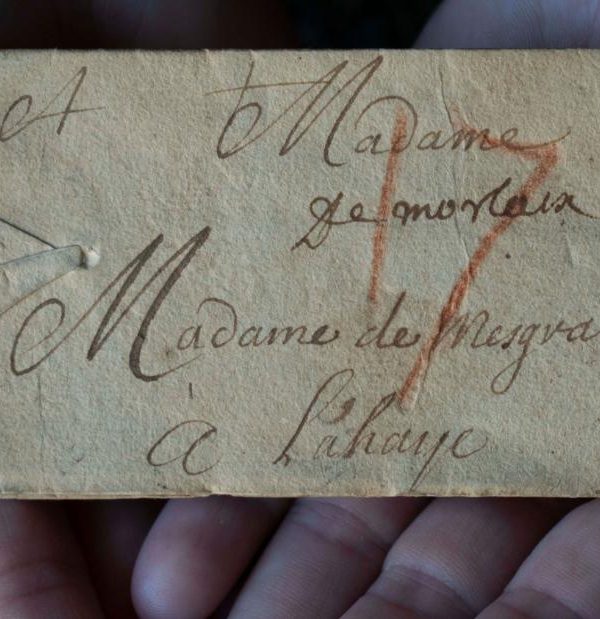 A Madame
De morlaix
17
Madame de Mesgra
a Lahaye